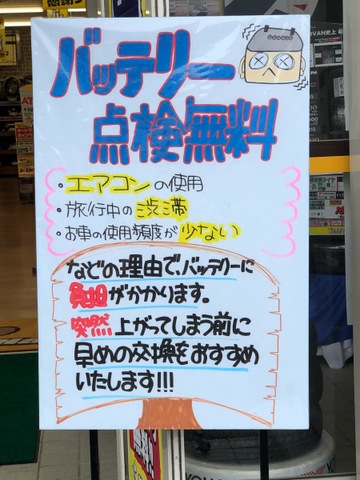 バッテリー
点検無料
・エアコンの使用
・旅行中の渋滞
・お車の使用頻度が少ない
などの理由で、バッテリーに
負担がかかります。
突然上がってしまう前に
早めの交換をおすすめ
いたします!!!